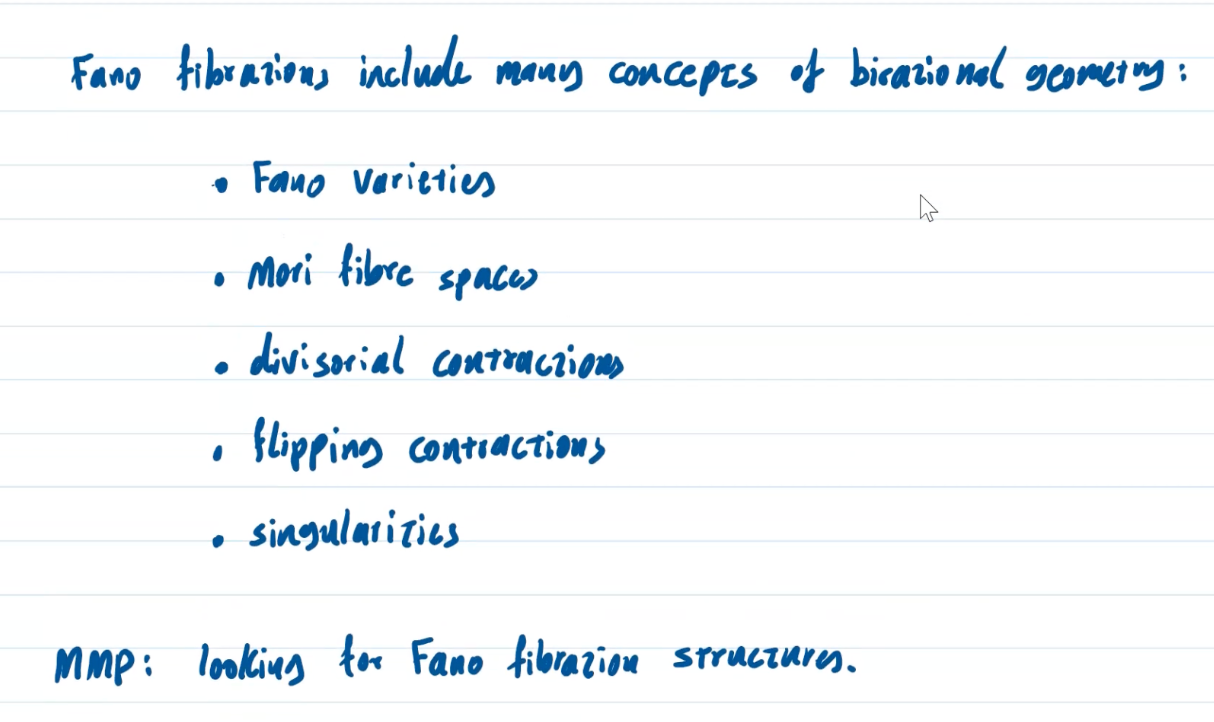 Fano fibrations include many concepts of birational geometry:
• Fano varieties
• Mori fibre spaces
• divisorial contractions
• flipping contractions
• singularities
MMP: looking for Fano fibration structures.